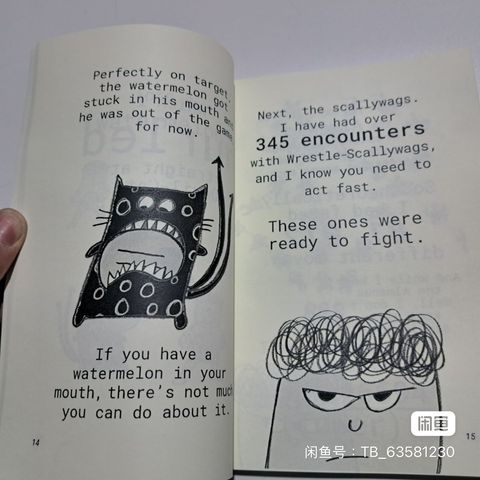 Perfectly on target,
the watermelon got
stuck in his mouth and
he was out of the game
for now.
If you have a
watermelon in your
mouth, there's not much
you can do about it.
14
Next, the scallywags.
I have had over
345 encounters
with Wrestle-Scallywags,
and I know you need to
act fast.
These ones were
ready to fight.
15
闲鱼
闲鱼号：TB_63581230